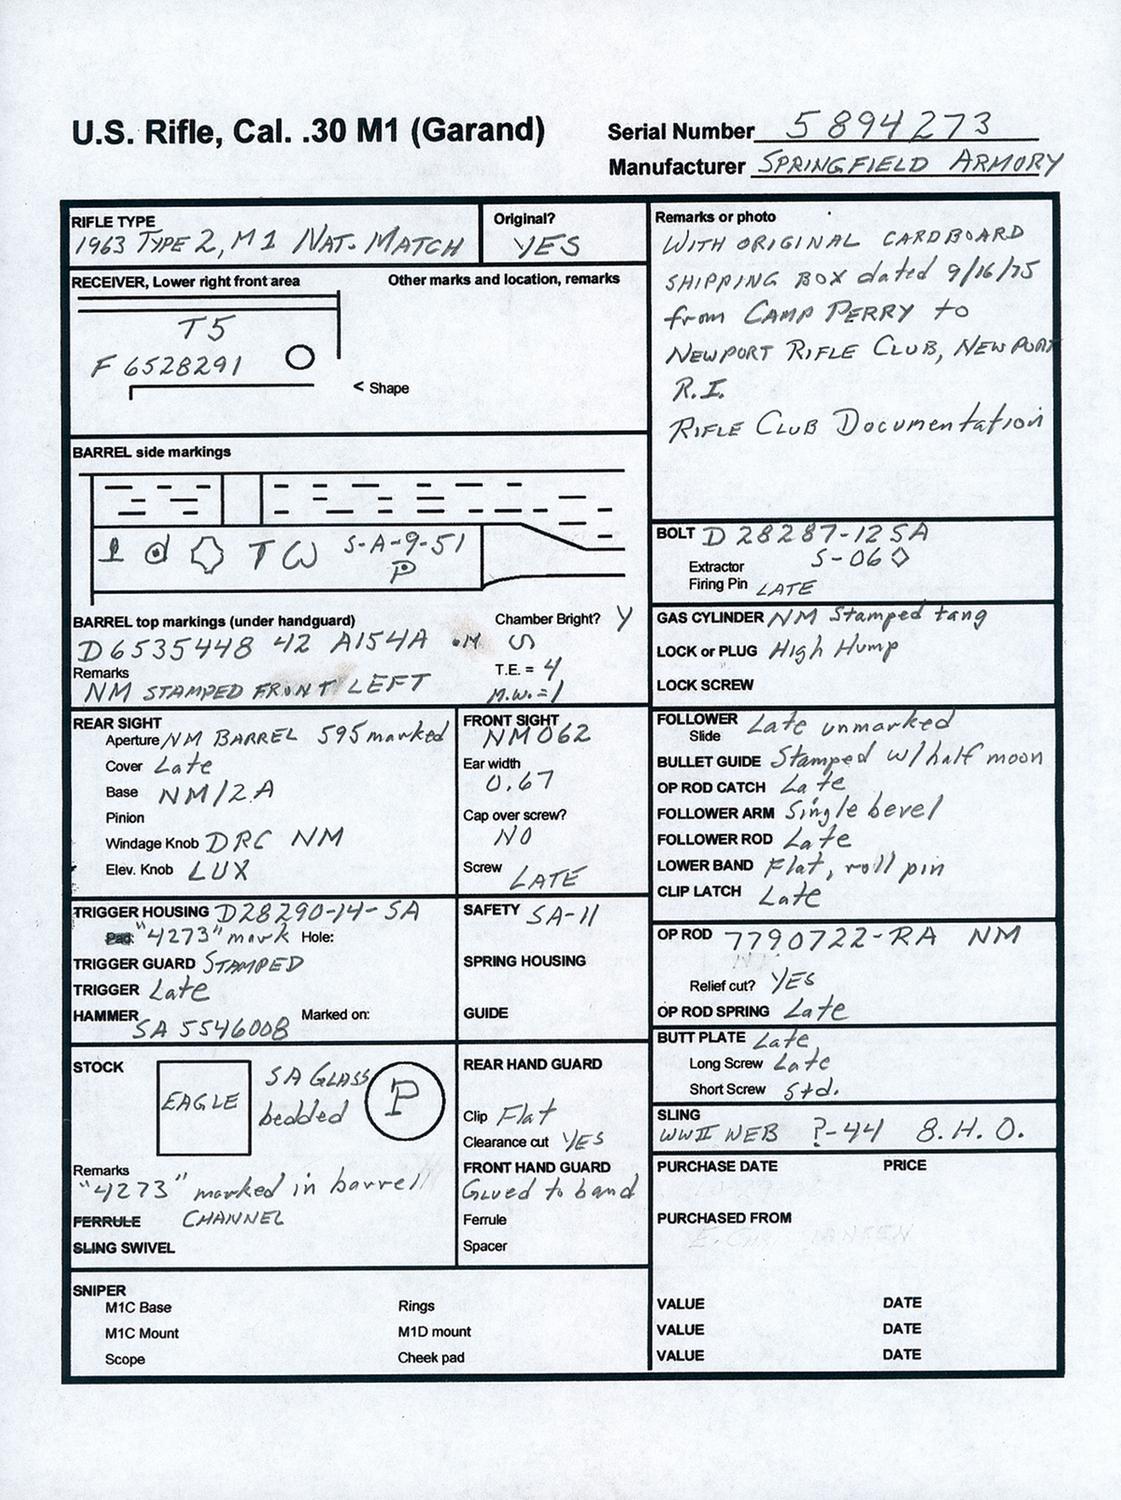 U.S. Rifle, Cal. .30 M1 (Garand)
Serial Number 5894273
Manufacturer SPRINGFIELD ARMORY
RIFLE TYPE
1963 TYPE 2, M1 NAT. MATCH
Original?
YES
RECEIVER, Lower right front area
Other marks and location, remarks
T5
F 6528291
< Shape
BARREL side markings
T S-A-9-51
P
BARREL top markings (under handguard)
Chamber Bright? Y
D6535448 42 A154A .M
Remarks
T.E. = 4
NM STAMPED FRONT LEFT
M.W. = 1
REAR SIGHT
Aperture NM BARREL 595 marked
Cover Late
Base NM/2A
Pinion
Windage Knob DRC NM
Elev. Knob LUX
FRONT SIGHT
NM062
Ear width
0.67
Cap over screw?
NO
Screw LATE
TRIGGER HOUSING D28290-14-SA
Pad: "4273" mark Hole:
TRIGGER GUARD STAMPED
TRIGGER Late
HAMMER Marked on:
SA 5546008
SAFETY SA-11
SPRING HOUSING
GUIDE
STOCK
EAGLE
SA GLASS
bedded
P
Remarks
"4273" marked in barrel
FERRULE CHANNEL
SLING SWIVEL
REAR HAND GUARD
Clip Flat
Clearance cut YES
FRONT HAND GUARD
Glued to band
Ferrule
Spacer
SNIPER
M1C Base
Rings
M1C Mount
M1D mount
Scope
Cheek pad
Remarks or photo
WITH ORIGINAL CARDBOARD
SHIPPING BOX dated 9/16/75
from CAMP PERRY to
NEWPORT RIFLE CLUB, NEWPORT
R.I.
RIFLE CLUB Documentation
BOLT D 28287-12SA
Extractor S-06◇
Firing Pin LATE
GAS CYLINDER NM Stamped tang
LOCK or PLUG High Hump
LOCK SCREW
FOLLOWER Late unmarked
Slide
BULLET GUIDE Stamped w/half moon
OP ROD CATCH Late
FOLLOWER ARM Single bevel
FOLLOWER ROD Late
LOWER BAND Flat, roll pin
CLIP LATCH Late
OP ROD 7790722-RA NM
Relief cut? YES
OP ROD SPRING Late
BUTT PLATE Late
Long Screw Late
Short Screw Std.
SLING
WWII WEB ?-44 B.H.O.
PURCHASE DATE
PRICE
PURCHASED FROM
VALUE DATE
VALUE DATE
VALUE DATE